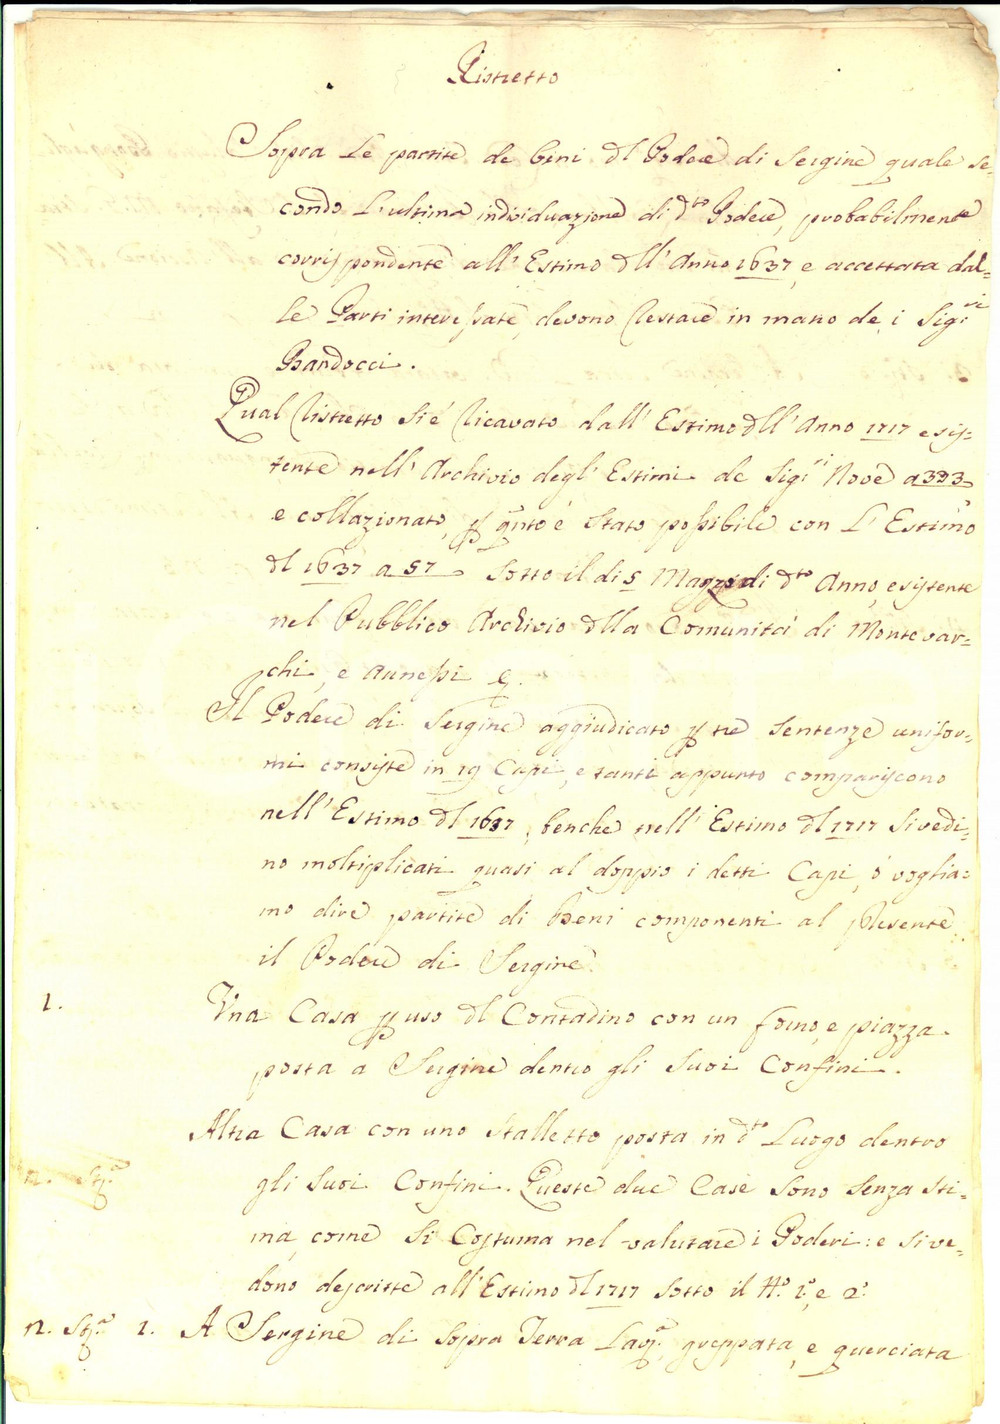 Ristretto
Sopra Le partite de beni dl Podere di Sergine quale se-
condo L'ultima individuazione di d.to Podere, probabilmente
corrispondente all'Estimo dll'Anno 1637, e accettata dal-
le Parti interessate, devono restare in mano de i Sig.ri
Bandocci.
Qual ristretto si é ricavato dall'Estimo dll'Anno 1717 esis-
tente nell'Archivio degl'Estimi de Sig.ri Nove a 333
e collazionato, p q.nto é stato possibile con L'Estimo
dl 1637 a 57 sotto il di 5 Marzo di d.to Anno, esistente
nel Pubblico Archivio dlla Comunità di Montevar-
chi, e annessi
Il Podere di Sergine aggiudicato p tre sentenze unifor-
mi consiste in 19 Capi, e tanti appunto compariscono
nell'Estimo dl 1637, benche nell'Estimo dl 1717 si vedi-
no moltiplicati quasi al doppio i detti Capi, ó voglia-
mo dire partite di Beni componenti al presente
il Podere di Sergine.
1. Una Casa p uso dl Contadino con un forno, e piazza
posta a Sergine dentro gli suoi Confini.
Altra Casa con uno stalletto posta in d.to Luogo dentro
gli suoi Confini. Queste due Case sono senza sti-
ma, come si Costuma nel valutare i Poderi: e si ve-
dono descritte all'Estimo dl 1717 sotto il N.o 1.o e 2.o
n. St.a 1. A Sergine di sopra Terra Lav.a greppata, e querciata